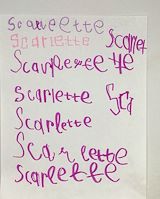 Scaveette
Scarlette
Scarlet
Scarlesette
Scarlette
Sca
Scarlette
Scarlette
Scarlette